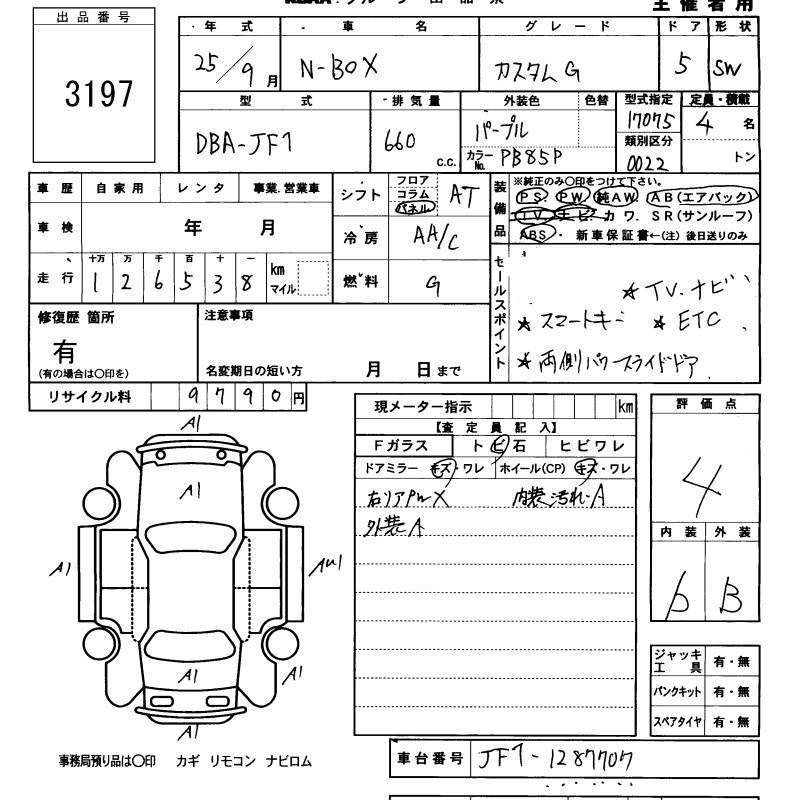 主催者用
出品番号
3197
年式 車名 グレード ドア 形状
25/9月 N-BOX カスタムG 5 SW
型式 排気量 外装色 色替 型式指定 定員・積載
DBA-JF1 660 C.C. パープル 17075 4名
類別区分
カラーNo. PB85P 0022 トン
車歴 自家用 レンタ 事業.営業車
車検 年 月
走行 十万 万 千 百 十 一
1 2 6 5 3 8 km マイル
シフト フロア コラム パネル AT
冷房 AA/C
燃料 G
装備品
※純正のみ○印をつけて下さい。
PS. PW. 純AW. AB(エアバック)
TV. ナビ. カワ. SR(サンルーフ)
ABS. 新車保証書←(注)後日送りのみ
セールスポイント
★TV.ナビ
★スマートキー ★ETC
★両側パワースライドドア
修復歴 箇所
有
(有の場合は○印を)
注意事項
名変期日の短い方 月 日まで
リサイクル料 9790円
現メーター指示 km
【査定員記入】
Fガラス トビ石 ヒビワレ
ドアミラー キズ・ワレ ホイール(CP) キズ・ワレ
右リアPw X 内装汚れA
外装A
評価点
4
内装 外装
b B
A1
A1
A1
AU1
A1
A1
A1
ジャッキ工具 有・無
パンクキット 有・無
スペアタイヤ 有・無
事務局預り品は○印 カギ リモコン ナビロム
車台番号 JF1-1287707